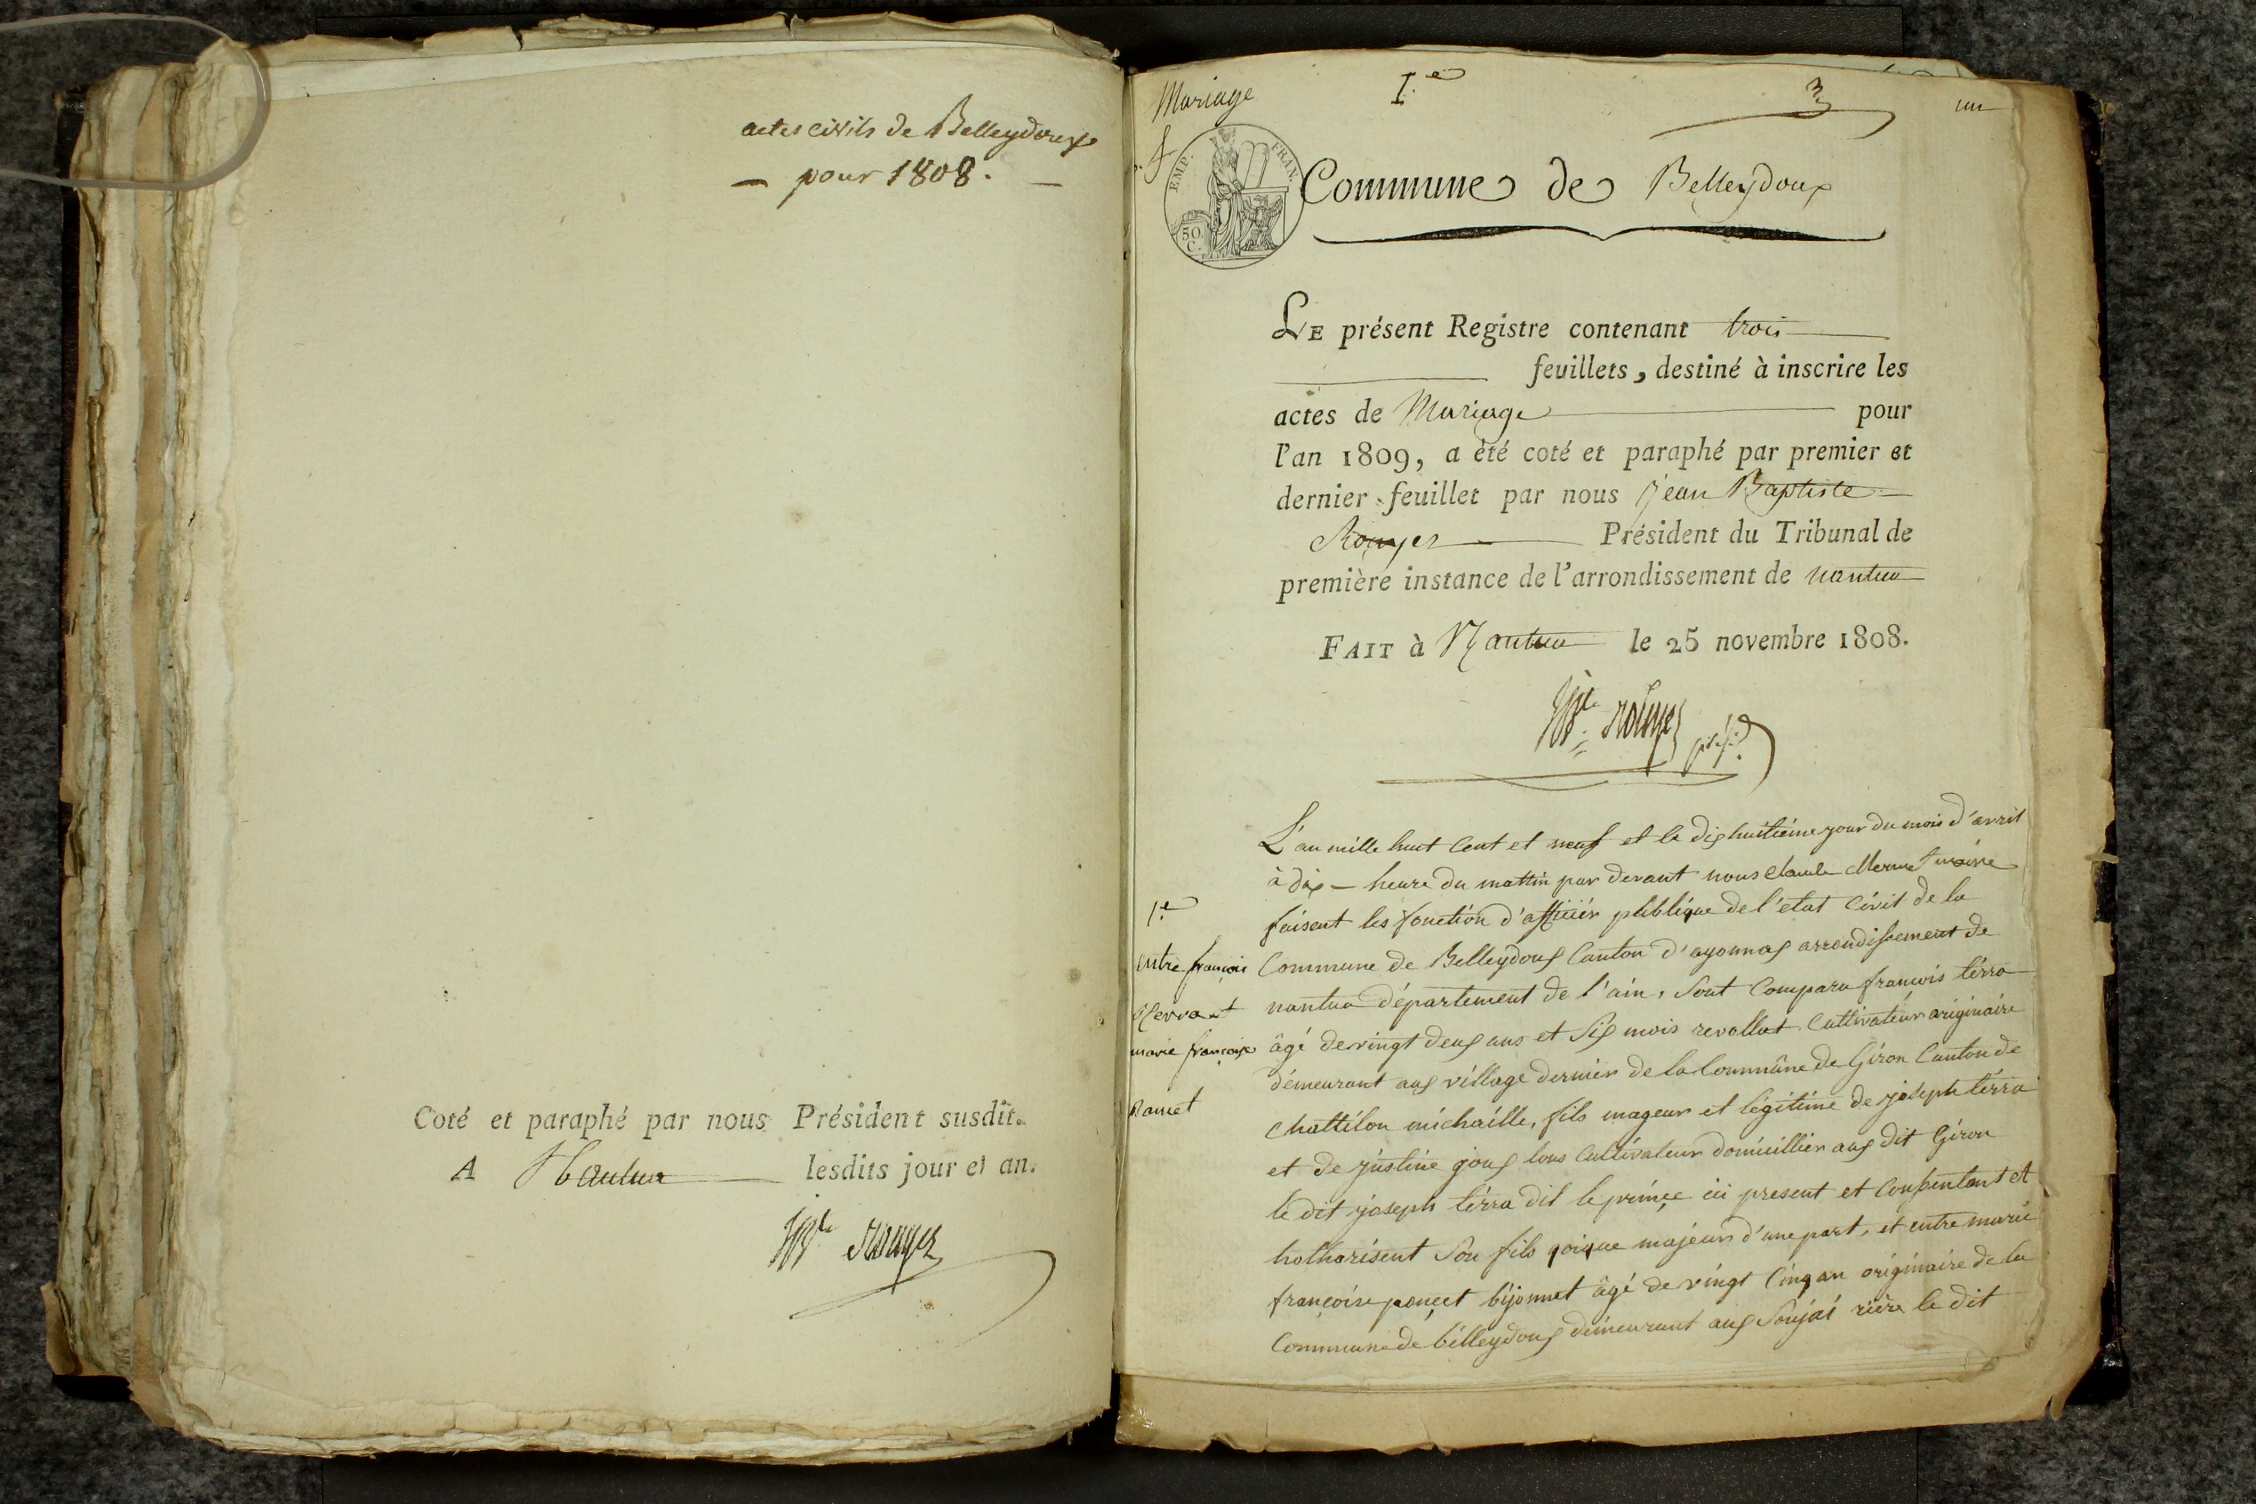 actes civils de Belleydoux
— pour 1808. —
Coté et paraphé par nous Président susdit.
A Nantua lesdits jour et an.
JBte Rouyer
Mariage
1.e
3
un
EMP. FRAN.
50 C.
Commune de Belleydoux
LE présent Registre contenant trois
feuillets, destiné à inscrire les
actes de Mariage pour
l'an 1809, a été coté et paraphé par premier et
dernier feuillet par nous jean Baptiste
Rouyer Président du Tribunal de
première instance de l'arrondissement de nantua
FAIT à Nantua le 25 novembre 1808.
JBte Rouyer présid.
1.e
entre françois
terra et
marie françoise
L'an mille huit Cent et neuf et le dix huitiéme jour du mois d'avril
à dix — heure du mattin par devant nous Claude Mermet maire
faisent les fonction d'afficiér publique de l'etat Civil de la
Commune de Belleydoux Canton d'ayonnax arrondissement de
nantua département de l'ain, Sont Comparu francois térra
âgé de vingt deux ans et Six mois revollut Cultivateur originaire
démeurant aux village dernier de la Commûne de Giron Canton de
Chattilon michaille, fils mageur et légitime de joseph térra
et de justine joux tous Cultivateur domicillier aux dit Giron
le dit joseph térra dit le prince ici present et Consentant et
hotharisent Son fils qoique majeur d'une part, et entre marie
françoise ponçet bijonnet âgé de vingt Cinq an originaire de la
Commune de bélleydoux démeurant aux Soujai riére le dit